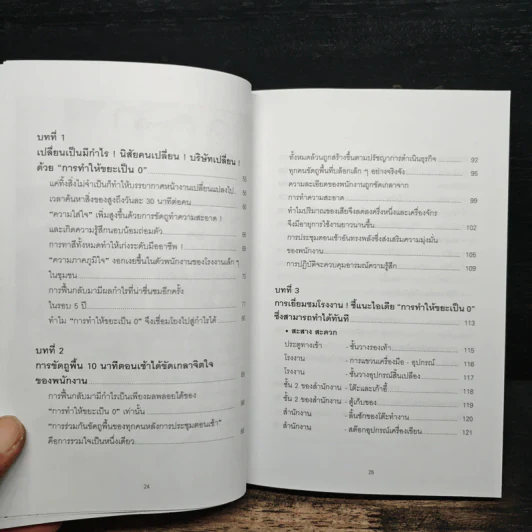 บทที่ 1
เปลี่ยนเป็นมีกำไร ! นิสัยคนเปลี่ยน ! บริษัทเปลี่ยน !
ด้วย "การทำให้ขยะเป็น 0"
แค่ทิ้งสิ่งไม่จำเป็นก็ทำให้บรรยากาศหน้างานเปลี่ยนแปลงไป
เวลาค้นหาสิ่งของสูงถึงวันละ 30 นาทีต่อคน
"ความใส่ใจ" เพิ่มสูงขึ้นด้วยการขัดถูทำความสะอาด !
และเกิดความรู้สึกนอบน้อมถ่อมตัว
การทาสีทั้งหมดทำให้เก่งระดับมืออาชีพ !
"ความภาคภูมิใจ" งอกเงยขึ้นในตัวพนักงานของโรงงานเล็ก ๆ
ในชุมชน
การฟื้นกลับมามีผลกำไรที่น่าชื่นชมอีกครั้ง
ในรอบ 5 ปี
ทำไม "การทำให้ขยะเป็น 0" จึงเชื่อมโยงไปสู่กำไรได้
บทที่ 2
การขัดถูพื้น 10 นาทีตอนเช้าได้ขัดเกลาจิตใจ
ของพนักงาน
การฟื้นกลับมามีกำไรเป็นเพียงผลพลอยได้ของ
"การทำให้ขยะเป็น 0" เท่านั้น
"การร่วมกันขัดถูพื้นของทุกคนหลังการประชุมตอนเช้า"
คือการรวมใจเป็นหนึ่งเดียว
24
ทั้งหมดล้วนถูกสร้างขึ้นตามปรัชญาการดำเนินธุรกิจ 92
ทุกคนขัดถูพื้นที่บล็อกเล็ก ๆ อย่างจริงจัง 95
ความละเอียดของพนักงานถูกขัดเกลาจาก
การทำความสะอาด 99
ทำไมปริมาณของเสียจึงลดลงครึ่งหนึ่งและเครื่องจักร
จึงมีอายุการใช้งานยาวนานขึ้น 102
การประชุมตอนเช้าอันทรงพลังซึ่งส่งเสริมความมุ่งมั่น
ของพนักงาน 105
การปฏิบัติจะควบคุมอารมณ์ความรู้สึก 109
บทที่ 3
การเยี่ยมชมโรงงาน ! ชี้แนะไอเดีย "การทำให้ขยะเป็น 0"
ซึ่งสามารถทำได้ทันที 113
• สะสาง สะดวก
ประตูทางเข้า - ชั้นวางรองเท้า 115
โรงงาน - การแขวนเครื่องมือ - อุปกรณ์ 116
โรงงาน - ชั้นวางอุปกรณ์สิ้นเปลือง 117
ชั้น 2 ของสำนักงาน - โต๊ะและเก้าอี้ 118
ชั้น 2 ของสำนักงาน - ตู้เก็บของ 119
สำนักงาน - ลิ้นชักของโต๊ะทำงาน 120
สำนักงาน - สต๊อกอุปกรณ์เครื่องเขียน 121
25